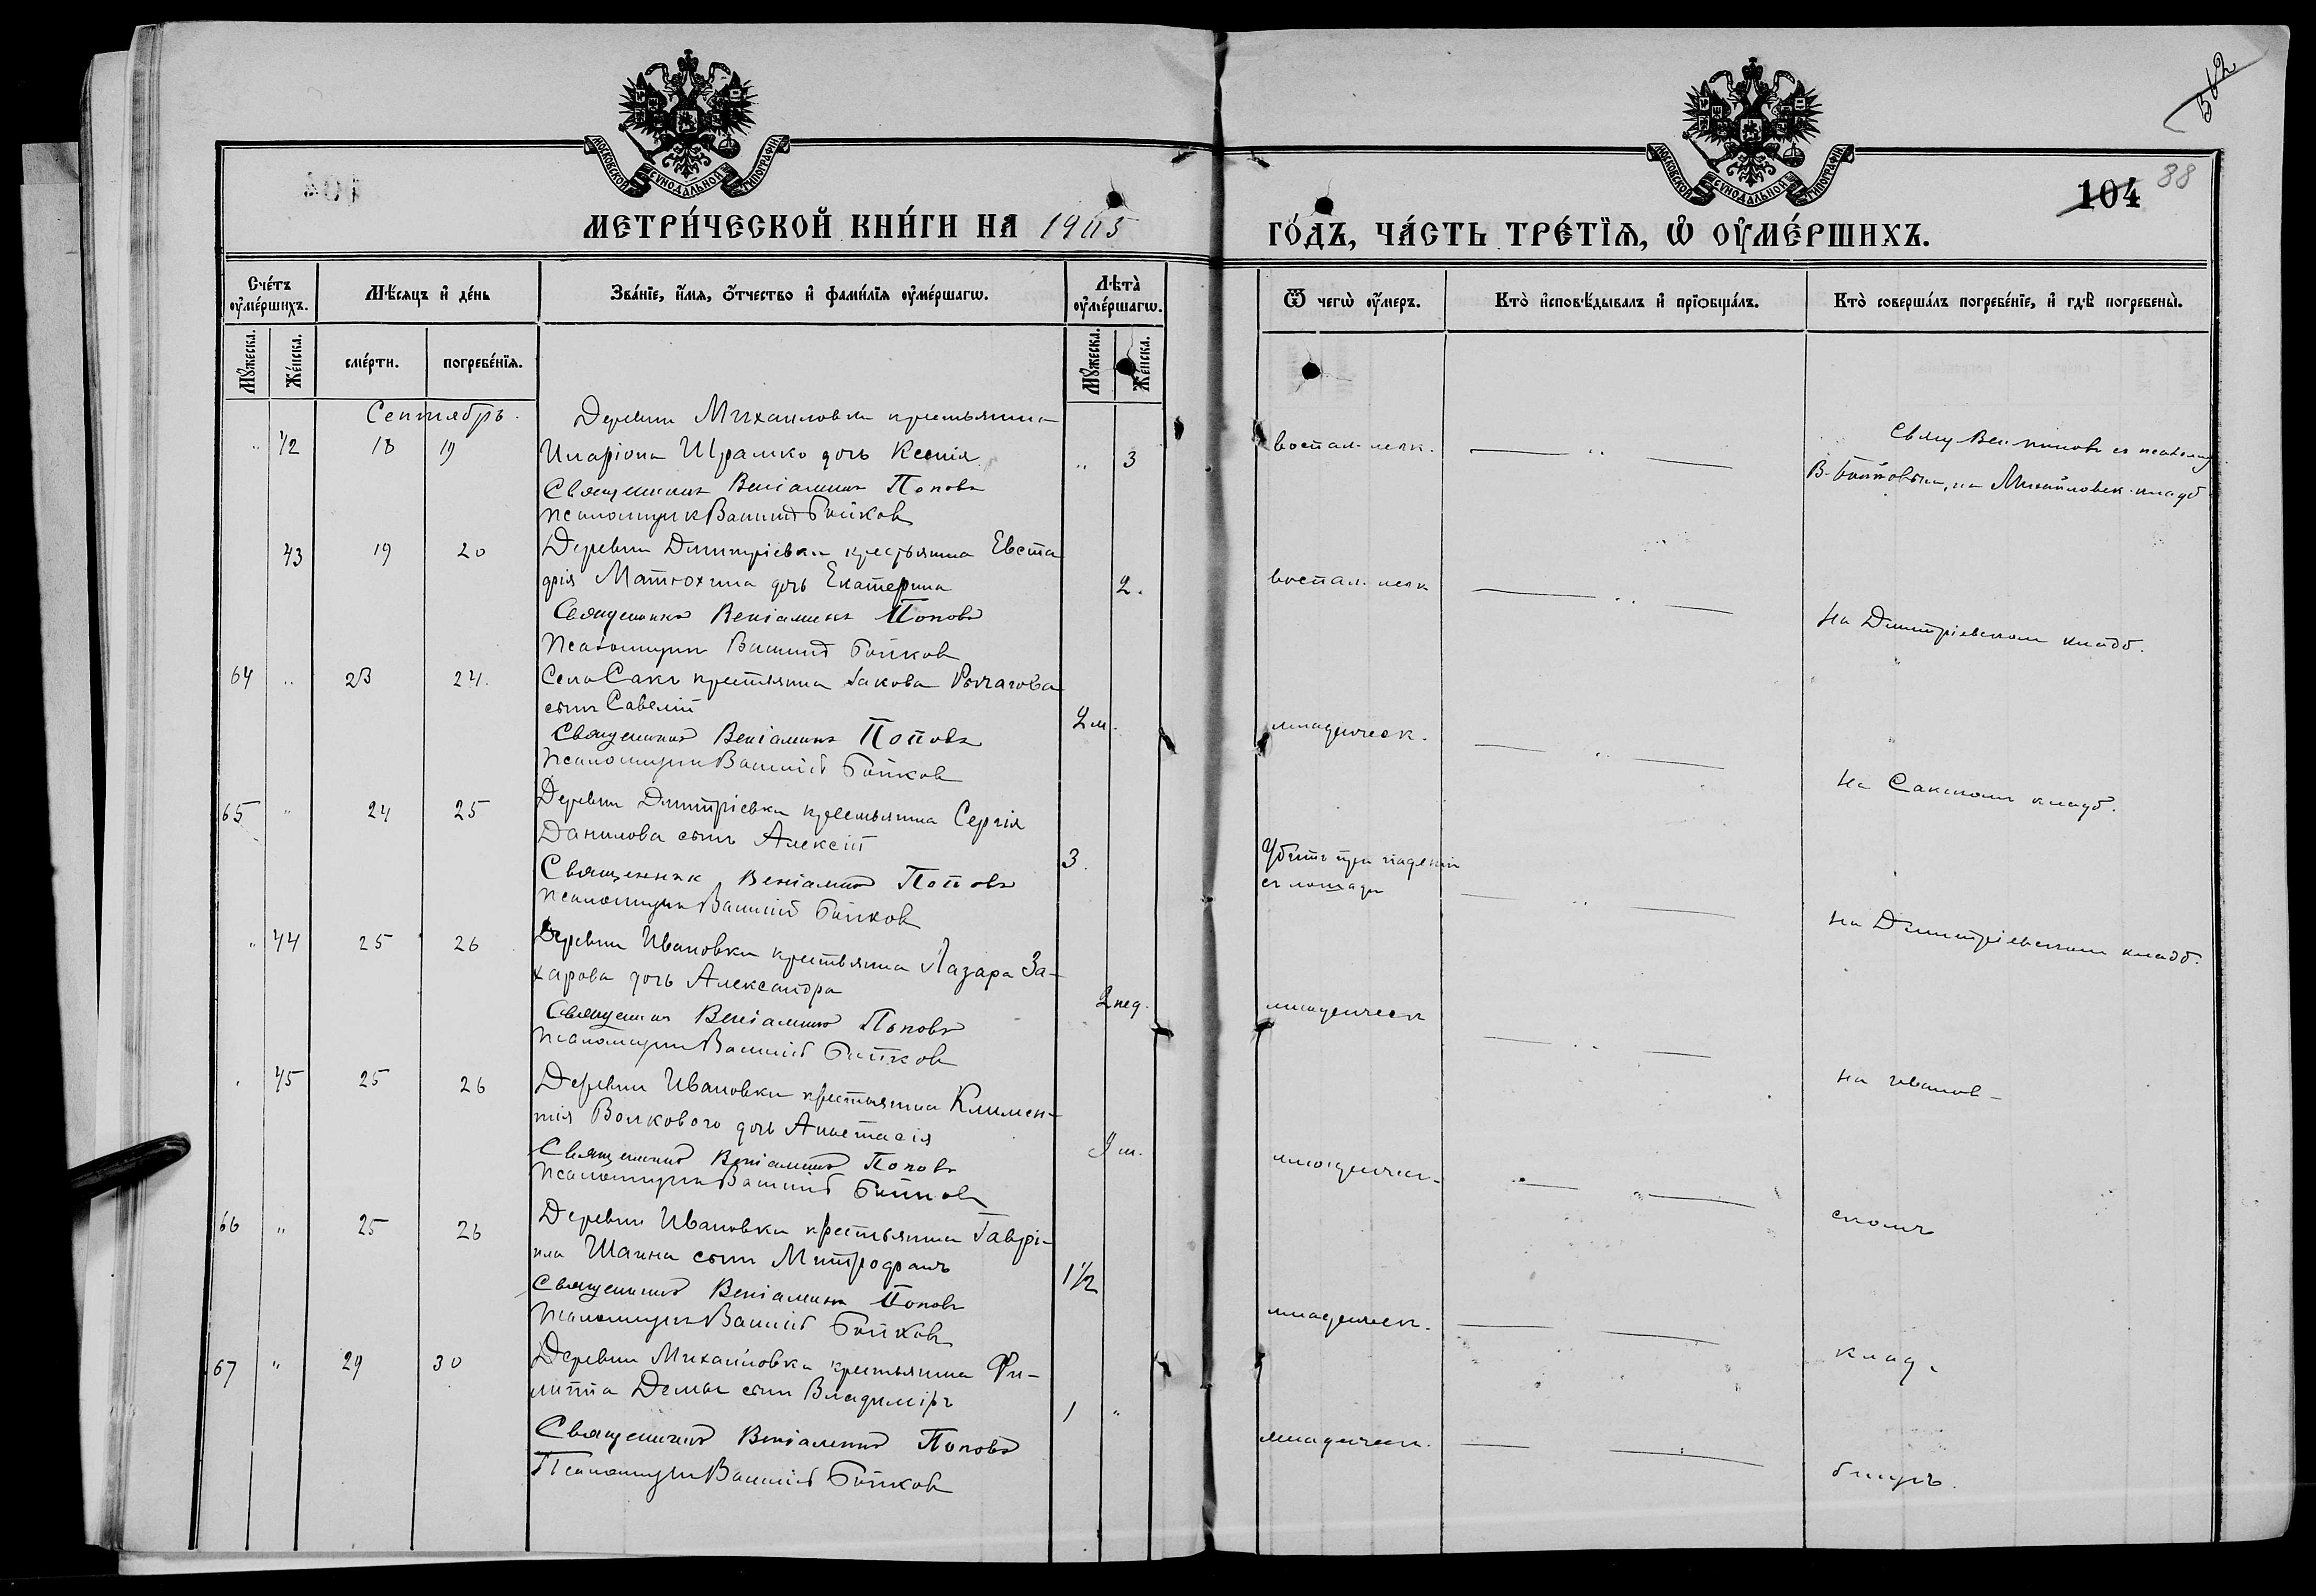 МОСКОВСКОЙ СѴНОДАЛЬНОЙ ТИПОГРАФІИ
МЕТРИ́ЧЕСКОЙ КНИ́ГИ НА 1905
Сче́тъ ᲂу҆ме́ршихъ.
Мѣ́сяцъ и҆ де́нь
Зва́нїе, и҆́мѧ, ѻ҆́тчество и҆ фами́лїѧ ᲂу҆ме́ршагѡ.
Лѣта̀ ᲂу҆ме́ршагѡ.
Мꙋ́жеска.
Же́нска.
сме́рти.
погребе́нїѧ.
Мꙋ́жеска.
Же́нска.
Сентябрь.
Деревни Михайловки крестьянина
" 42 18 19 Иларіона Шрамко дочь Ксенія " 3
Священникъ Веніаминъ Поповъ
псаломщикъ Василій Бойковъ
43 19 20 Деревни Димитріевки крестьянина Евста
фія Матюхина дочь Екатерина 2.
Священникъ Веніаминъ Поповъ
Псаломщикъ Василій Бойковъ
64 " 23 24. Села Саки крестьянина Іакова Рычагова
сынъ Савелій 2 м.
Священникъ Веніаминъ Поповъ
Псаломщикъ Василій Бойковъ
65 " 24 25 Деревни Димитріевки крестьянина Сергія
Данилова сынъ Алексій 3.
Священникъ Веніаминъ Поповъ
псаломщикъ Василій Бойковъ
" 44 25 26 Деревни Ивановки крестьянина Лазара За-
харова дочь Александра 2 нед.
Священникъ Веніаминъ Поповъ
псаломщикъ Василій Бойковъ
45 25 26 Деревни Ивановки крестьянина Климен-
тія Волкового дочь Анастасія м.
Священникъ Веніаминъ Поповъ
псаломщикъ Василій Бойковъ
66 " 25 26 Деревни Ивановки крестьянина Гаврі-
ила Шаина сынъ Митрофанъ 1 1/2
Священникъ Веніаминъ Поповъ
Псаломщикъ Василій Бойковъ
67 " 29 30 Деревни Михайловки крестьянина Фи-
липпа Демы сынъ Владиміръ 1 "
Священникъ Веніаминъ Поповъ
Псаломщикъ Василій Бойковъ
МОСКОВСКОЙ СѴНОДАЛЬНОЙ ТИПОГРАФІИ
104 88
ГО́ДЪ, ЧА́СТЬ ТРЕ́ТЇѦ, Ѡ҆ ОУ҆МЕ́РШИХЪ.
Ѿ чегѡ̀ ᲂу҆́меръ.
Кто̀ и҆сповѣ́дывалъ и҆ прїѻбща́лъ.
Кто̀ соверша́лъ погребе́нїе, и҆ гдѣ̀ погребены̀.
воспал. легк.
Свящ. Вен. Поповъ съ псаломщ.
В. Бойковымъ, на Михайловск. кладб.
воспал. легк
на Димитріевскомъ кладб.
младенческ.
на Сакскомъ кладб.
Убитъ при паденіи
съ лошади
на Димитріевскомъ кладб.
младенческ
на Иванов-
младенческ.
скомъ
младенческ.
клад-
младенческ.
бищѣ.